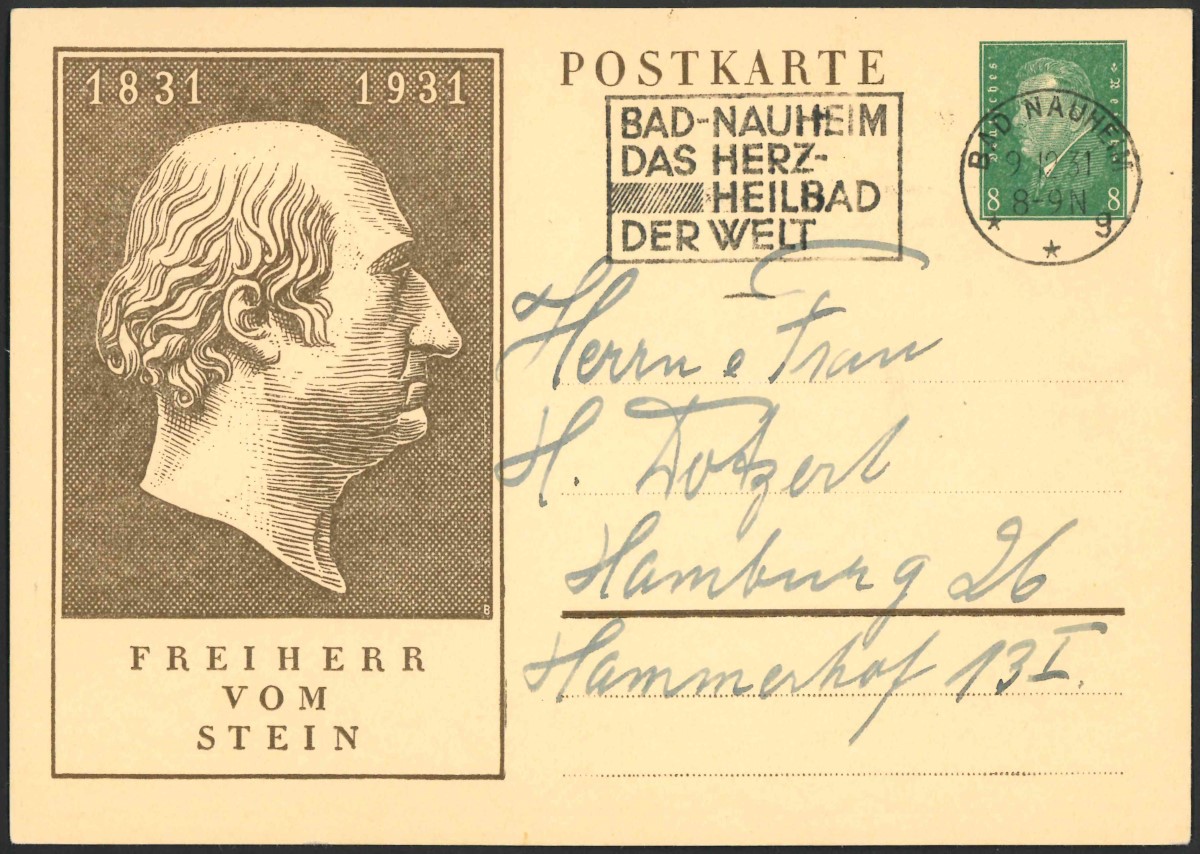 1831 1931
FREIHERR
VOM
STEIN
B
POSTKARTE
BAD-NAUHEIM
DAS HERZ-
HEILBAD
DER WELT
8 8
BAD NAUHEIM
9.12.31
8-9N
* * g
Herrn e Frau
H. Dotzert
Hamburg 26
Hammerhof 13 I.